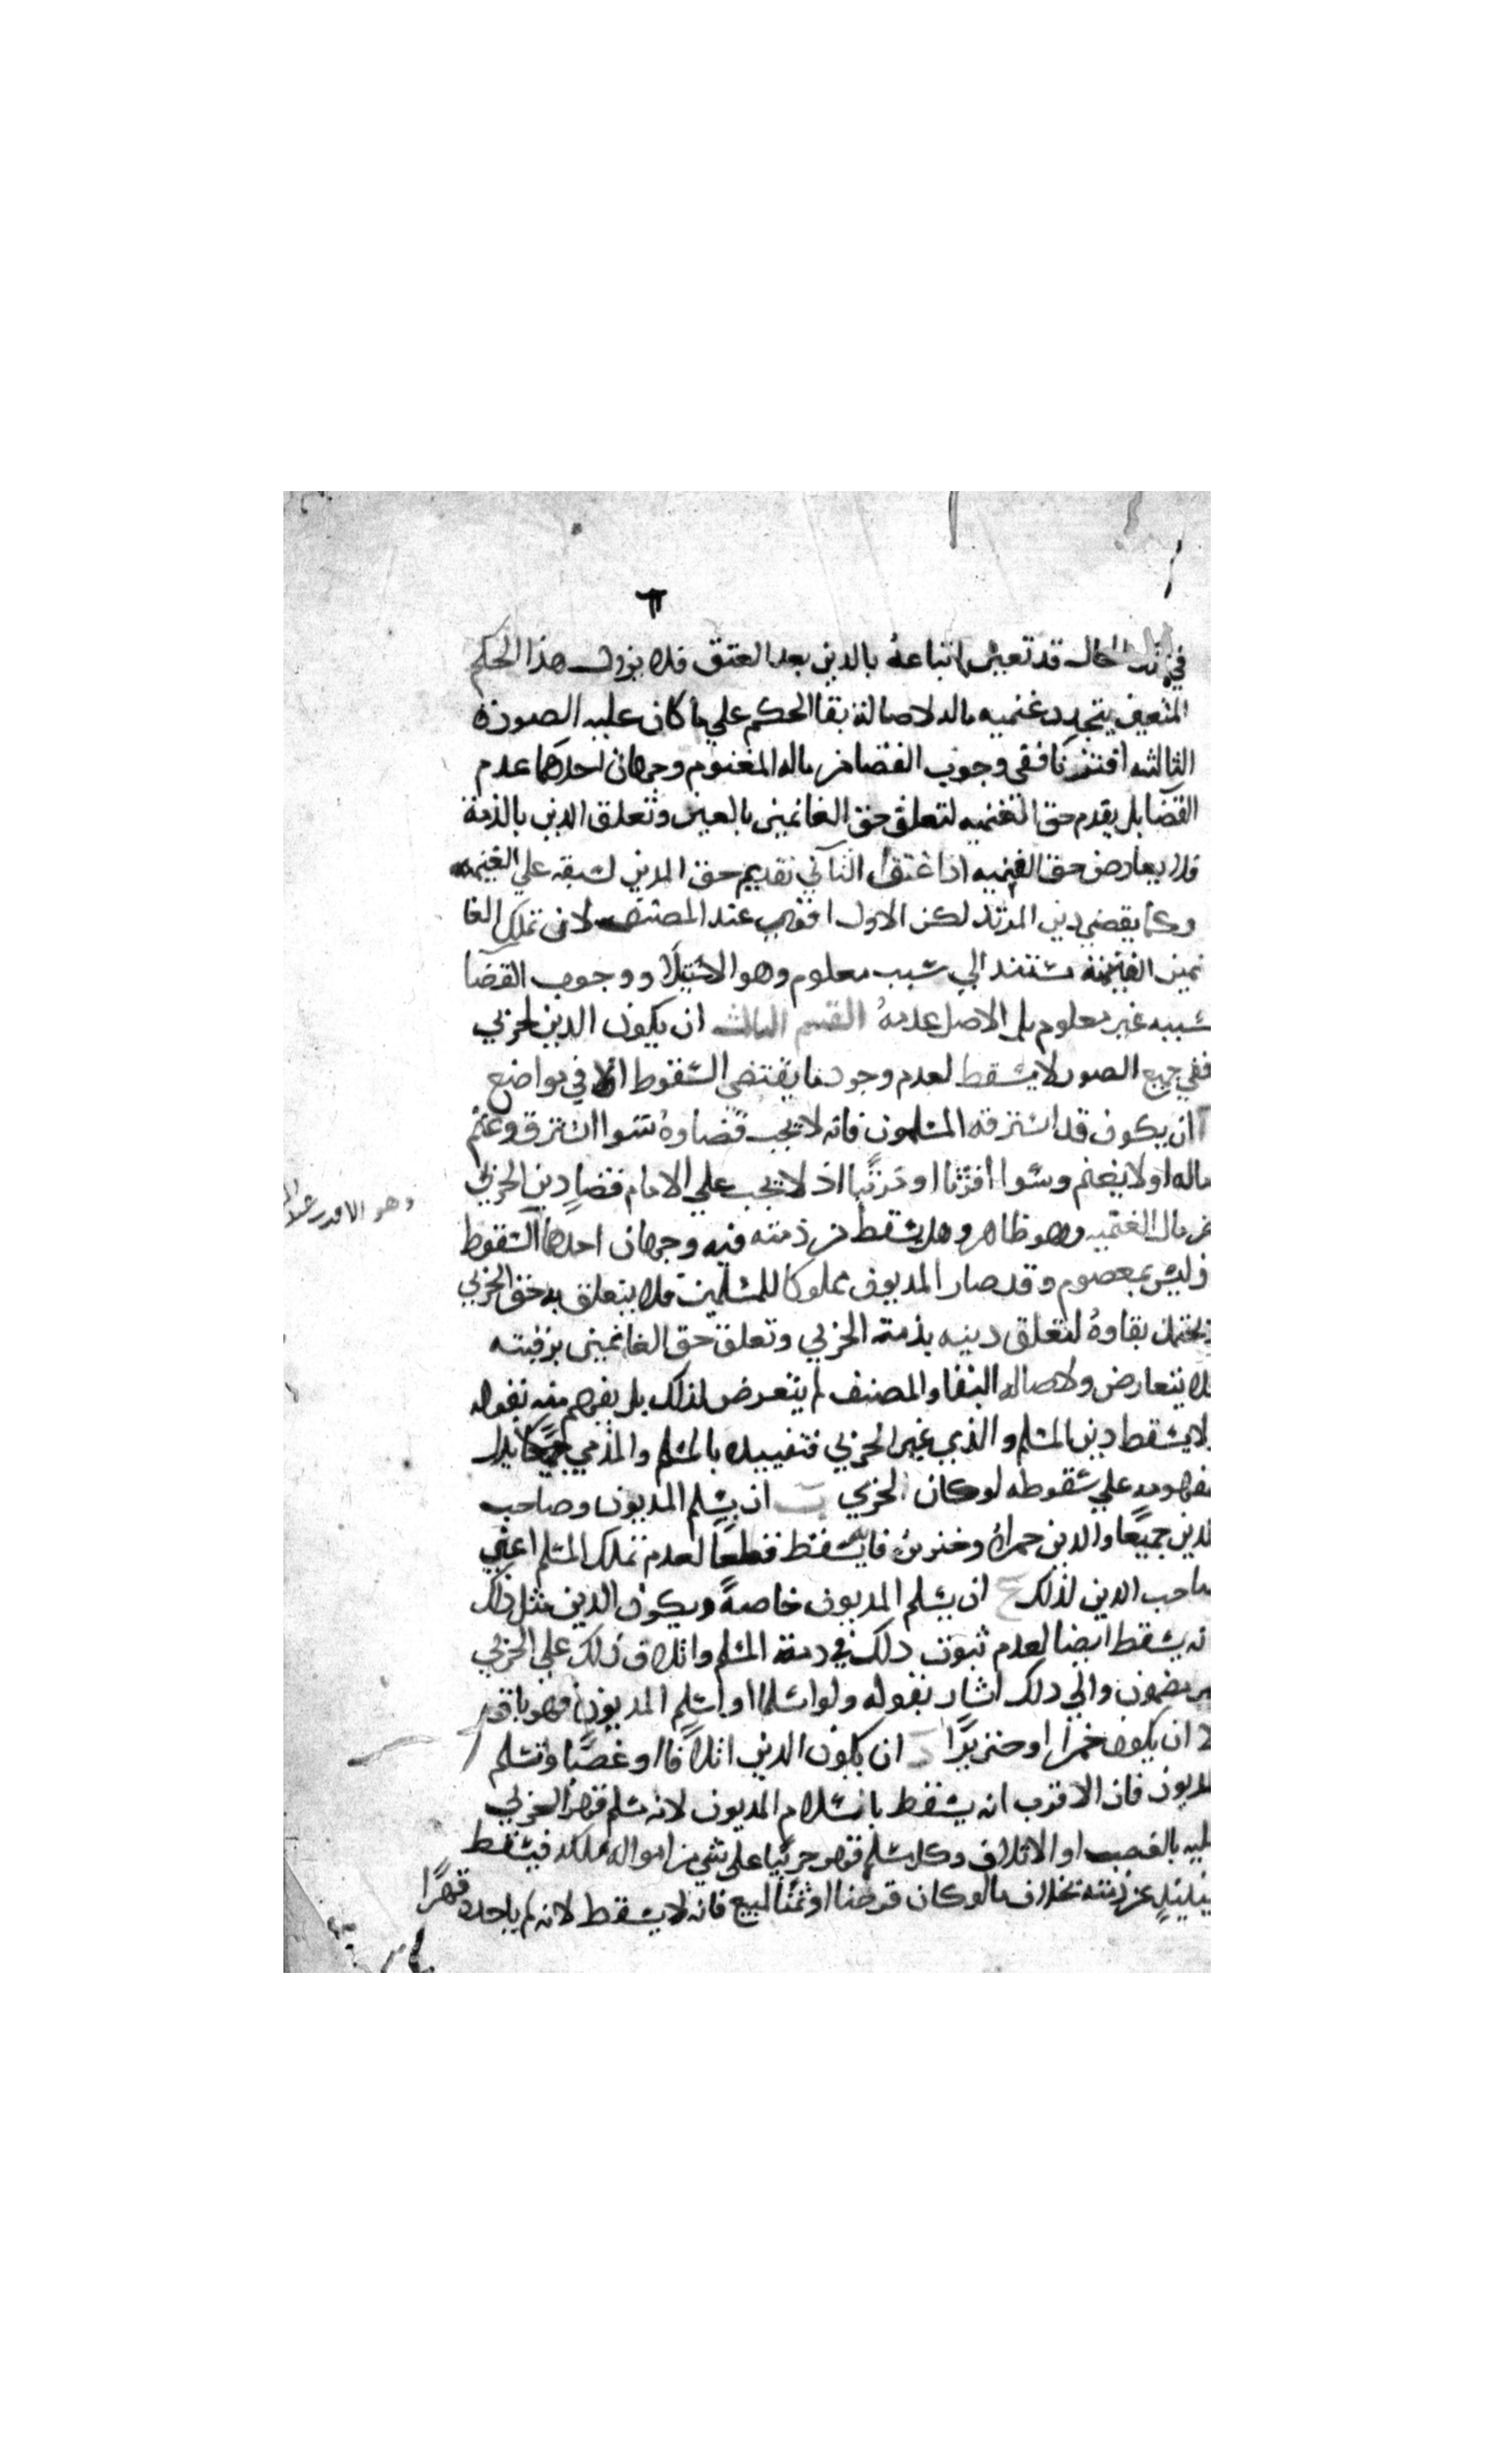 في تلك الحال قد تعين اتباعه بالدين بعد العتق فلا يزول هذا الحكم
المتعين بتجدد غنميه ماله لاصالة بقا الحكم علي ما كان عليه الصورة
الثالثه اقترنا ففي وجوب القضا من ماله المغنوم وجهان احدهما عدم
القضا بل يقدم حق الغنميه لتعلق حق الغانمين بالعين وتعلق الدين بالذمة
فلا يعارض حق الغنميه اذا عتق الثاني تقديم حق الدين لسبقه علي الغنيمه
وكما يقضي دين المرتد لكن الاول اقوي عند المصنف لان تملك الغا
نمين الغنيمة مستند الي سبب معلوم وهو الاستيلا ووجوب القضا
سببه غير معلوم بل الاصل عدمه القسم الثالث ان يكون الدين لحربي
ففي جميع الصور لا يسقط لعدم وجود ما يقتضي السقوط الا في مواضع
ا ان يكون قد استرقه المسلمون فانه لا يجب قضاوه سوا استرق وغنم
ماله او لا يغنم وسوا اقترنا او ترتبا اذ لا يجب علي الامام قضا دين الحربي
من مال الغنميه وهو ظاهر وهل يسقط من ذمته فيه وجهان احدهما السقوط
وليس بمعصوم وقد صار المديون مملوكا للمسلمين فلا يتعلق به حق الحربي
ويحتمل بقاوه لتعلق دينه بذمة الحربي وتعلق حق الغانمين برقبته
فلا يتعارض ولاصالة البقا والمصنف لم يتعرض لذلك بل يفهم منه بقوله
ولا يسقط دين المسلم والذي غير الحربي فتقييده بالمسلم والذمي يدل
مفهومه علي سقوطه لو كان الحربي ب ان يسلم المديون وصاحب
الدين جميعا والدين خمرا او خنزير فانه يسقط قطعا لعدم تملك المسلم اعني
صاحب الدين لذلك ج ان يسلم المديون خاصة ويكون الدين مثل ذلك
فانه يسقط ايضا لعدم ثبوت ذلك في ذمة المسلم واتلاف ذلك علي الحربي
غير مضمون والي ذلك اشار بقوله ولو اسلما او اسلم المديون فهو باق
الا ان يكون خمرا او خنزيرا د ان يكون الدين اتلافا او غصبا واسلم
المديون فان الاقرب انه يسقط باسلام المديون لانه مسلم قهر الحربي
عليه بالغصب او الاتلاف وكل مسلم قهر حربيا علي شي من امواله ملكه فيسقط
حينيذ عن ذمته بخلاف ما لو كان قرضا او ثمنا لبيع فانه لا يسقط لانه لم ياخذه قهرا
وهو الاقرب